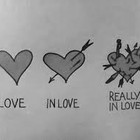 LOVE
IN LOVE
REALLY
IN LOVE